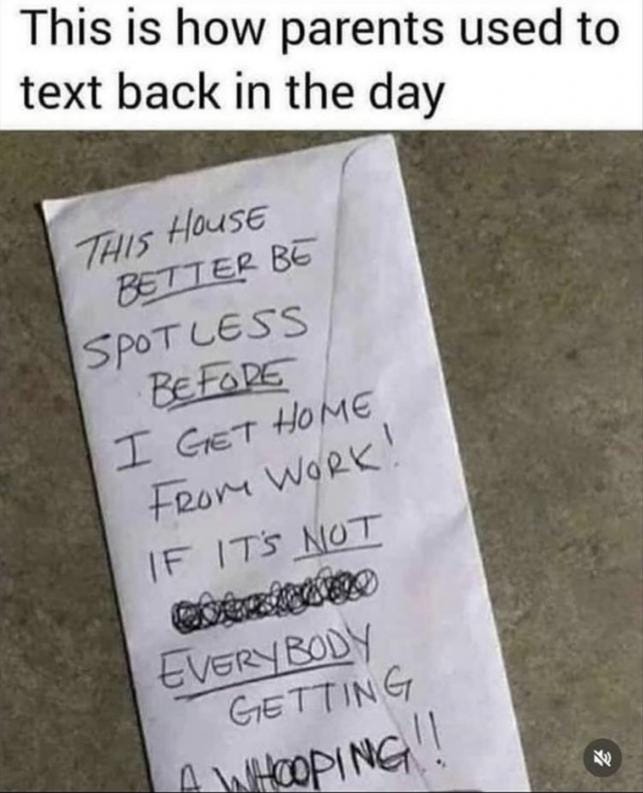 This is how parents used to
text back in the day
THIS HOUSE
BETTER BE
SPOTLESS
BEFORE
I GET HOME
FROM WORK!
IF IT'S NOT
EVERYBODY
GETTING
A WHOOPING!!